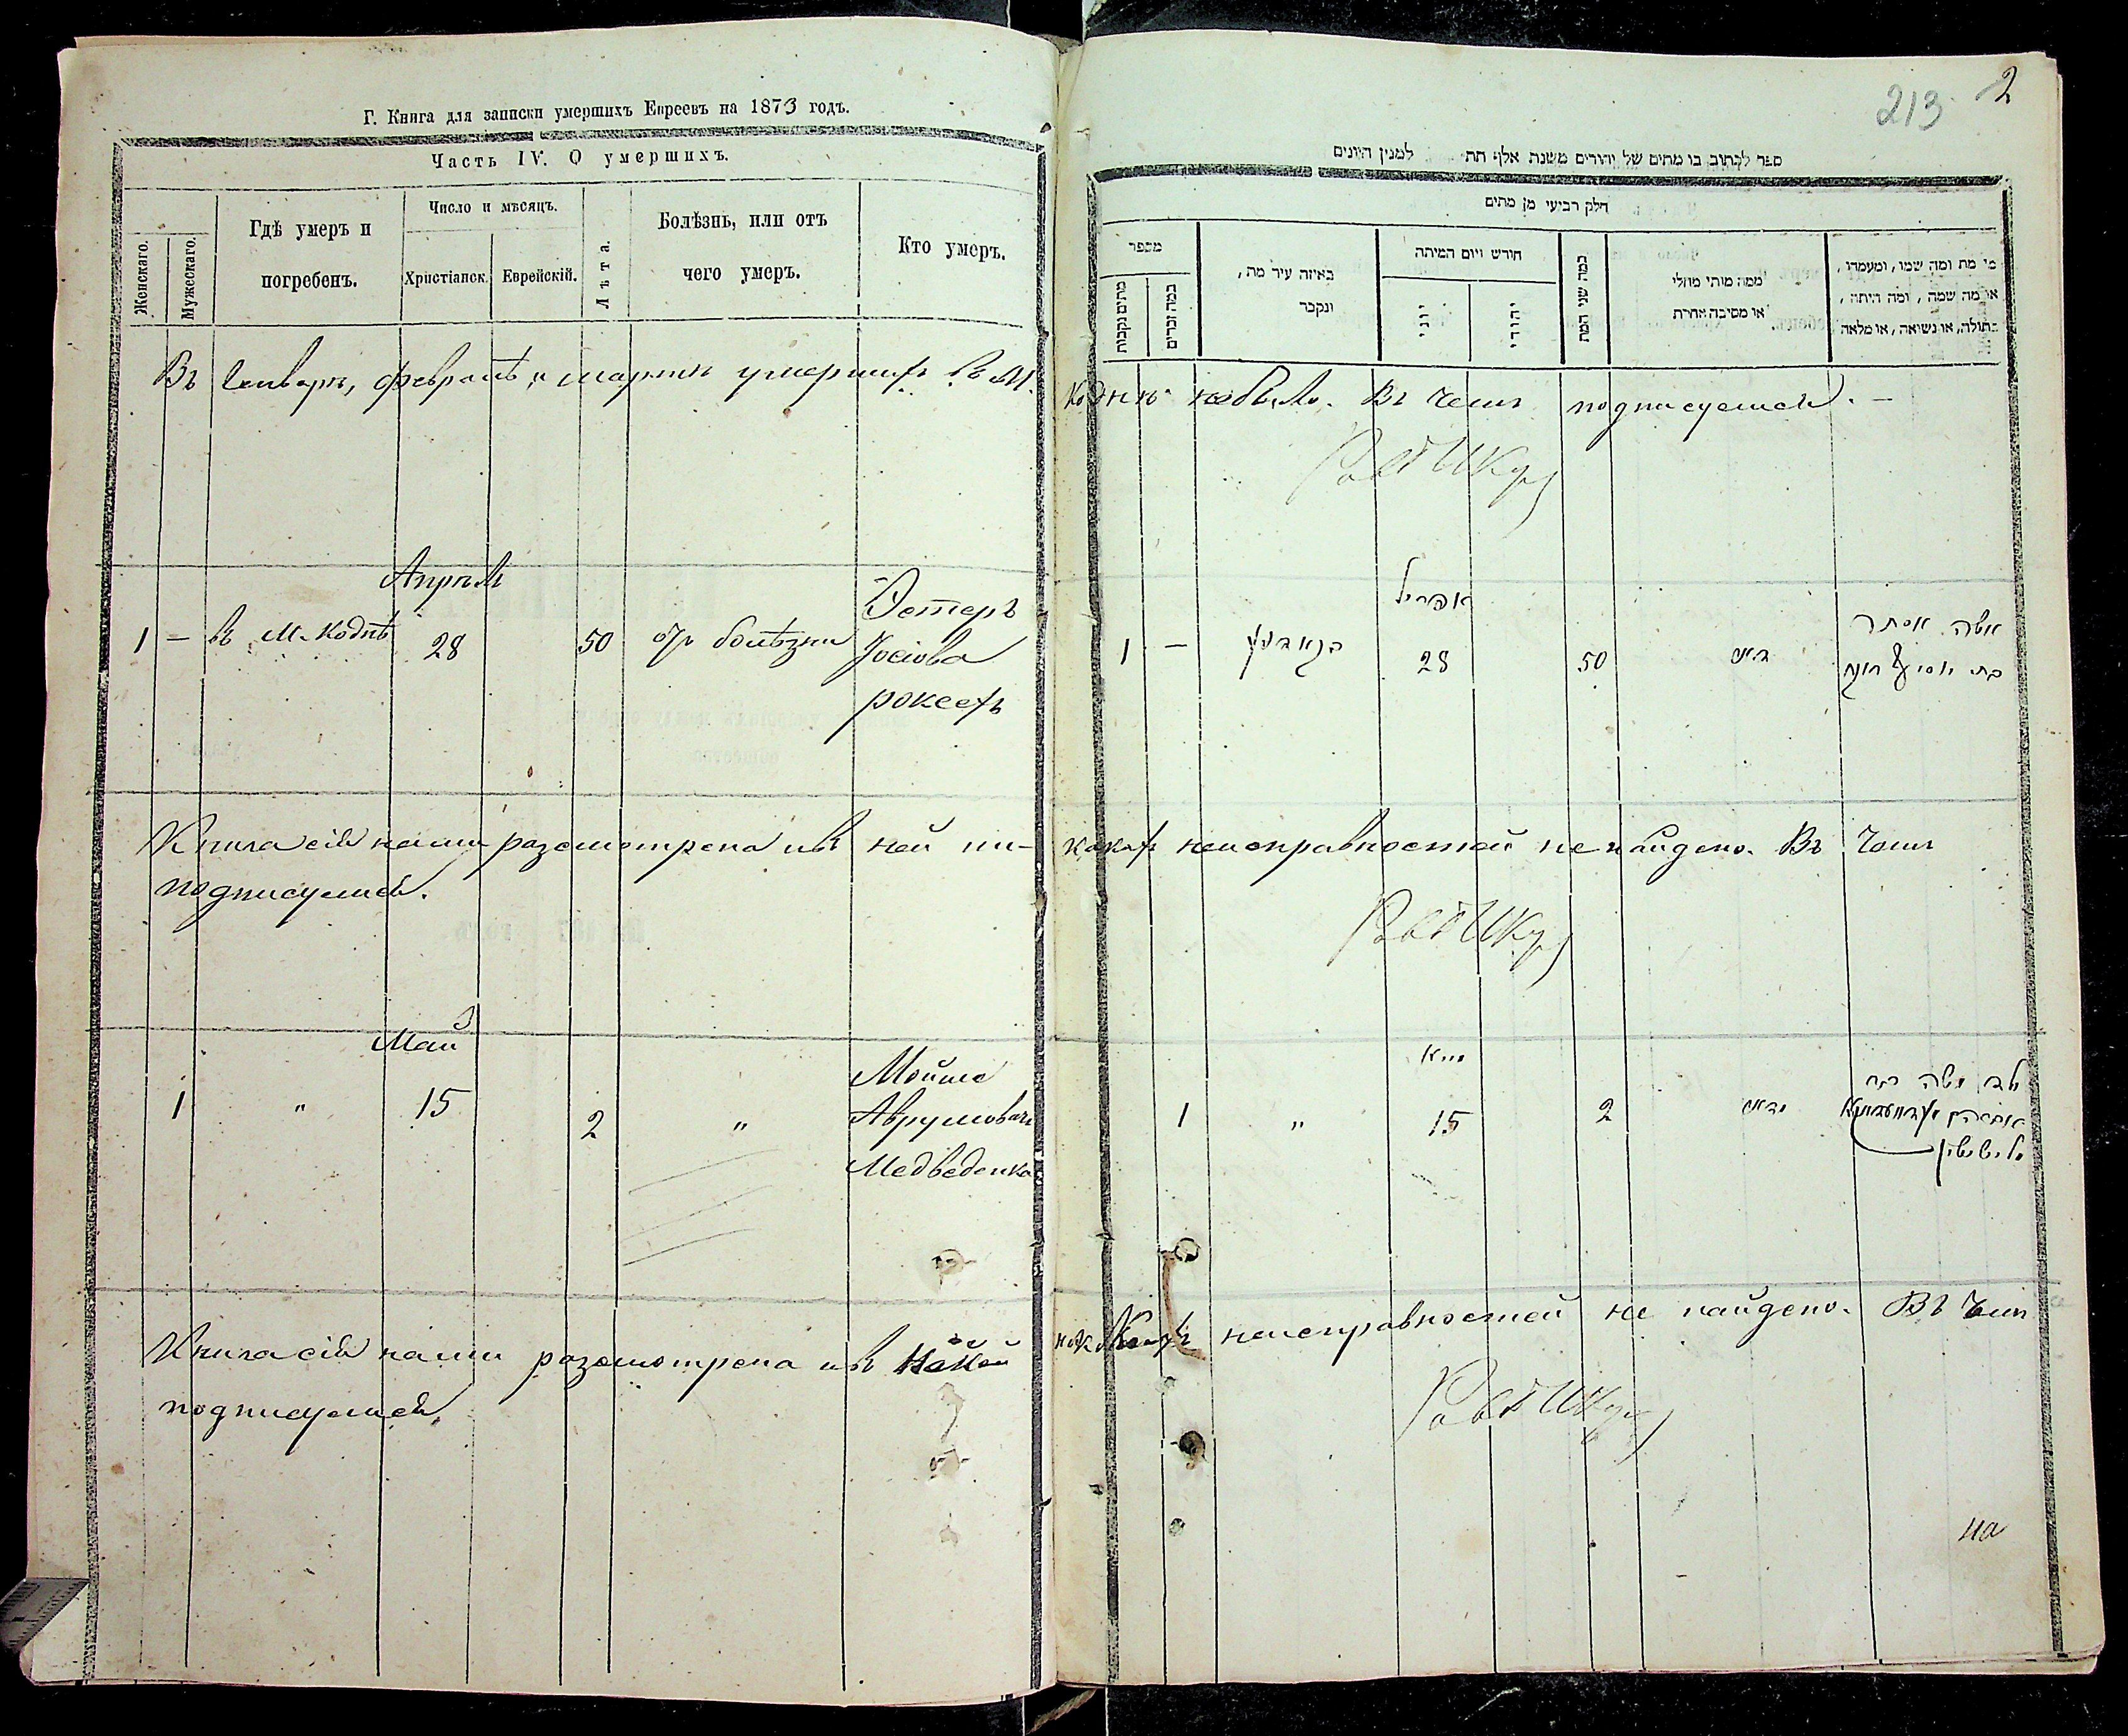 Г. Книга для записки умершихъ Евреевъ на 1873 годъ.
Часть IV. О умершихъ.
Женскаго.
Мужескаго.
Гдѣ умеръ и
погребенъ.
Число и мѣсяцъ.
Христіанск.
Еврейскій.
Лѣта.
Болѣзнь, или отъ
чего умеръ.
Кто умеръ.
213 2
ספר לכתוב בו מתים של יהודים משנת אלף תת למנין היונים
חלק רביעי מן מתים
מספר
מתים נקבות
כמה זכרים
באיזה עיר מת,
ונקבר
חודש ויום המיתה
יוני
יהודי
כמה שני המת
ממה מותי מחלי
או מסיבה אחרת
מי מת ומה שמו, ומעמדו,
או מה שמה, ומה היתה,
בתולה, או נשואה, או מלאה
Въ Генварѣ, февралѣ и мартѣ умершихъ въ М. Коднѣ небыло. Въ чемъ подписуемся. —
Апрѣль
1 — въ М. Коднѣ 28 50 отъ болѣзни
Эстеръ
Іосiова
рокеехъ
אפריל
1 — 28 50
אשה אסתר
Книга сія нами разсмотрена и въ ней ни- какихъ неисправностей не найдено. Въ чемъ
подписуемся.
Май
1 " 15 2 "
Мойше
Аврумовичъ
Медведенка
מייא
1 " 15 2
ילד משה בר
Книга сія нами разсмотрена и въ ней никакихъ неисправностей не найдено. Въ чемъ
подписуемся.
на